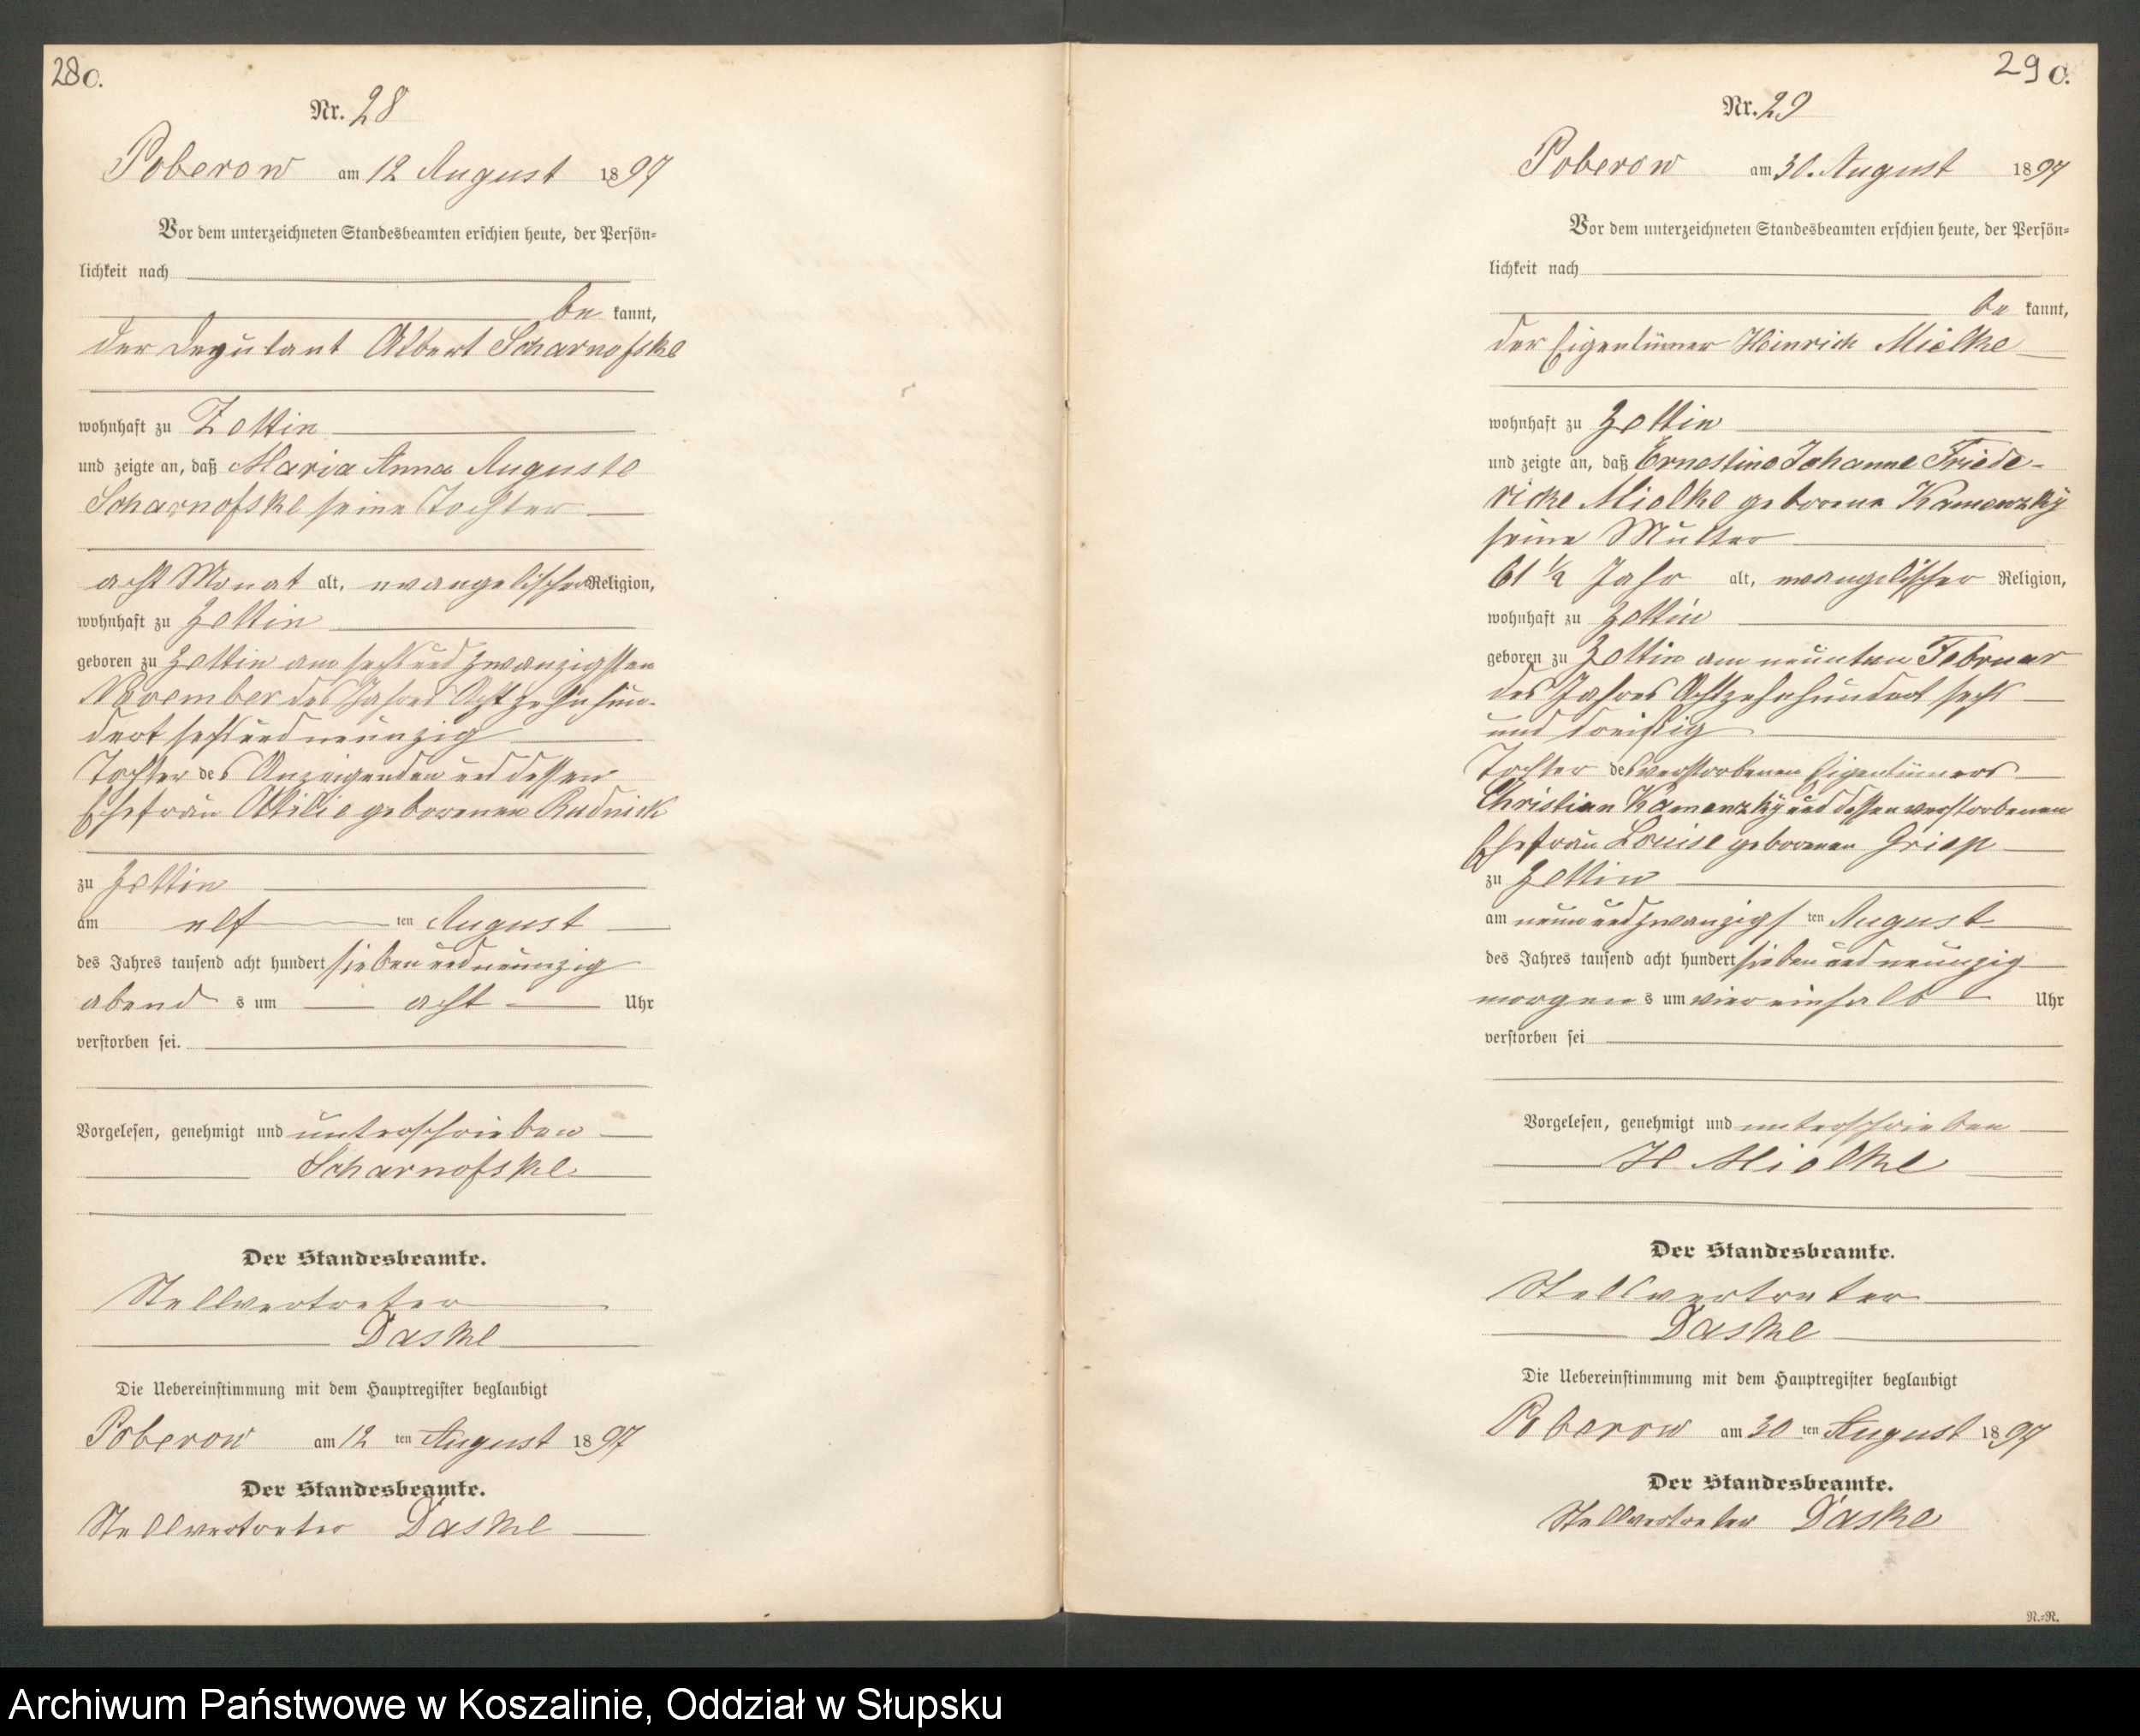 28 C.
Nr. 28
Poberow am 12 August 1897
Vor dem unterzeichneten Standesbeamten erschien heute, der Persön=
lichkeit nach
be kannt,
der Deputant Albert Scharnofske
wohnhaft zu Zettin
und zeigte an, daß Maria Anna Auguste
Scharnofske seine Tochter
acht Monat alt, evangelischer Religion,
wohnhaft zu Zettin
geboren zu Zettin am sechsundzwanzigsten
November des Jahres Achtzehnhun-
dert sechsundneunzig
Tochter des Anzeigenden und dessen
Ehefrau Ottilie geborenen Rudnick
zu Zettin
am elf ten August
des Jahres tausend acht hundert siebenundneunzig
abend s um acht Uhr
verstorben sei.
Vorgelesen, genehmigt und unterschrieben
Scharnofske
Der Standesbeamte.
Stellvertreter
Daske
Die Uebereinstimmung mit dem Hauptregister beglaubigt
Poberow am 12 ten August 1897
Der Standesbeamte.
Stellvertreter Daske
29 C.
Nr. 29
Poberow am 30. August 1897
Vor dem unterzeichneten Standesbeamten erschien heute, der Persön=
lichkeit nach
be kannt,
der Eigentümer Heinrich Mielke
wohnhaft zu Zettin
und zeigte an, daß Ernestine Johanne Friede-
ricke Mielke geborene Kamenzky
seine Mutter
61 1/2 Jahr alt, evangelischer Religion,
wohnhaft zu Zettin
geboren zu Zettin am neunten Februar
des Jahres Achtzehnhundert sechs
und dreißig
Tochter des verstorbenen Eigentümers
Christian Kamenzky und dessen verstorbenen
Ehefrau Louise geborenen Griep
zu Zettin
am neunundzwanzigs ten August
des Jahres tausend acht hundert siebenundneunzig
morgen s um viereinhalb Uhr
verstorben sei
Vorgelesen, genehmigt und unterschrieben
H Mielke
Der Standesbeamte.
Stellvertreter
Daske
Die Uebereinstimmung mit dem Hauptregister beglaubigt
Poberow am 30 ten August 1897
Der Standesbeamte.
Stellvertreter Daske
N.=N.
Archiwum Państwowe w Koszalinie, Oddział w Słupsku